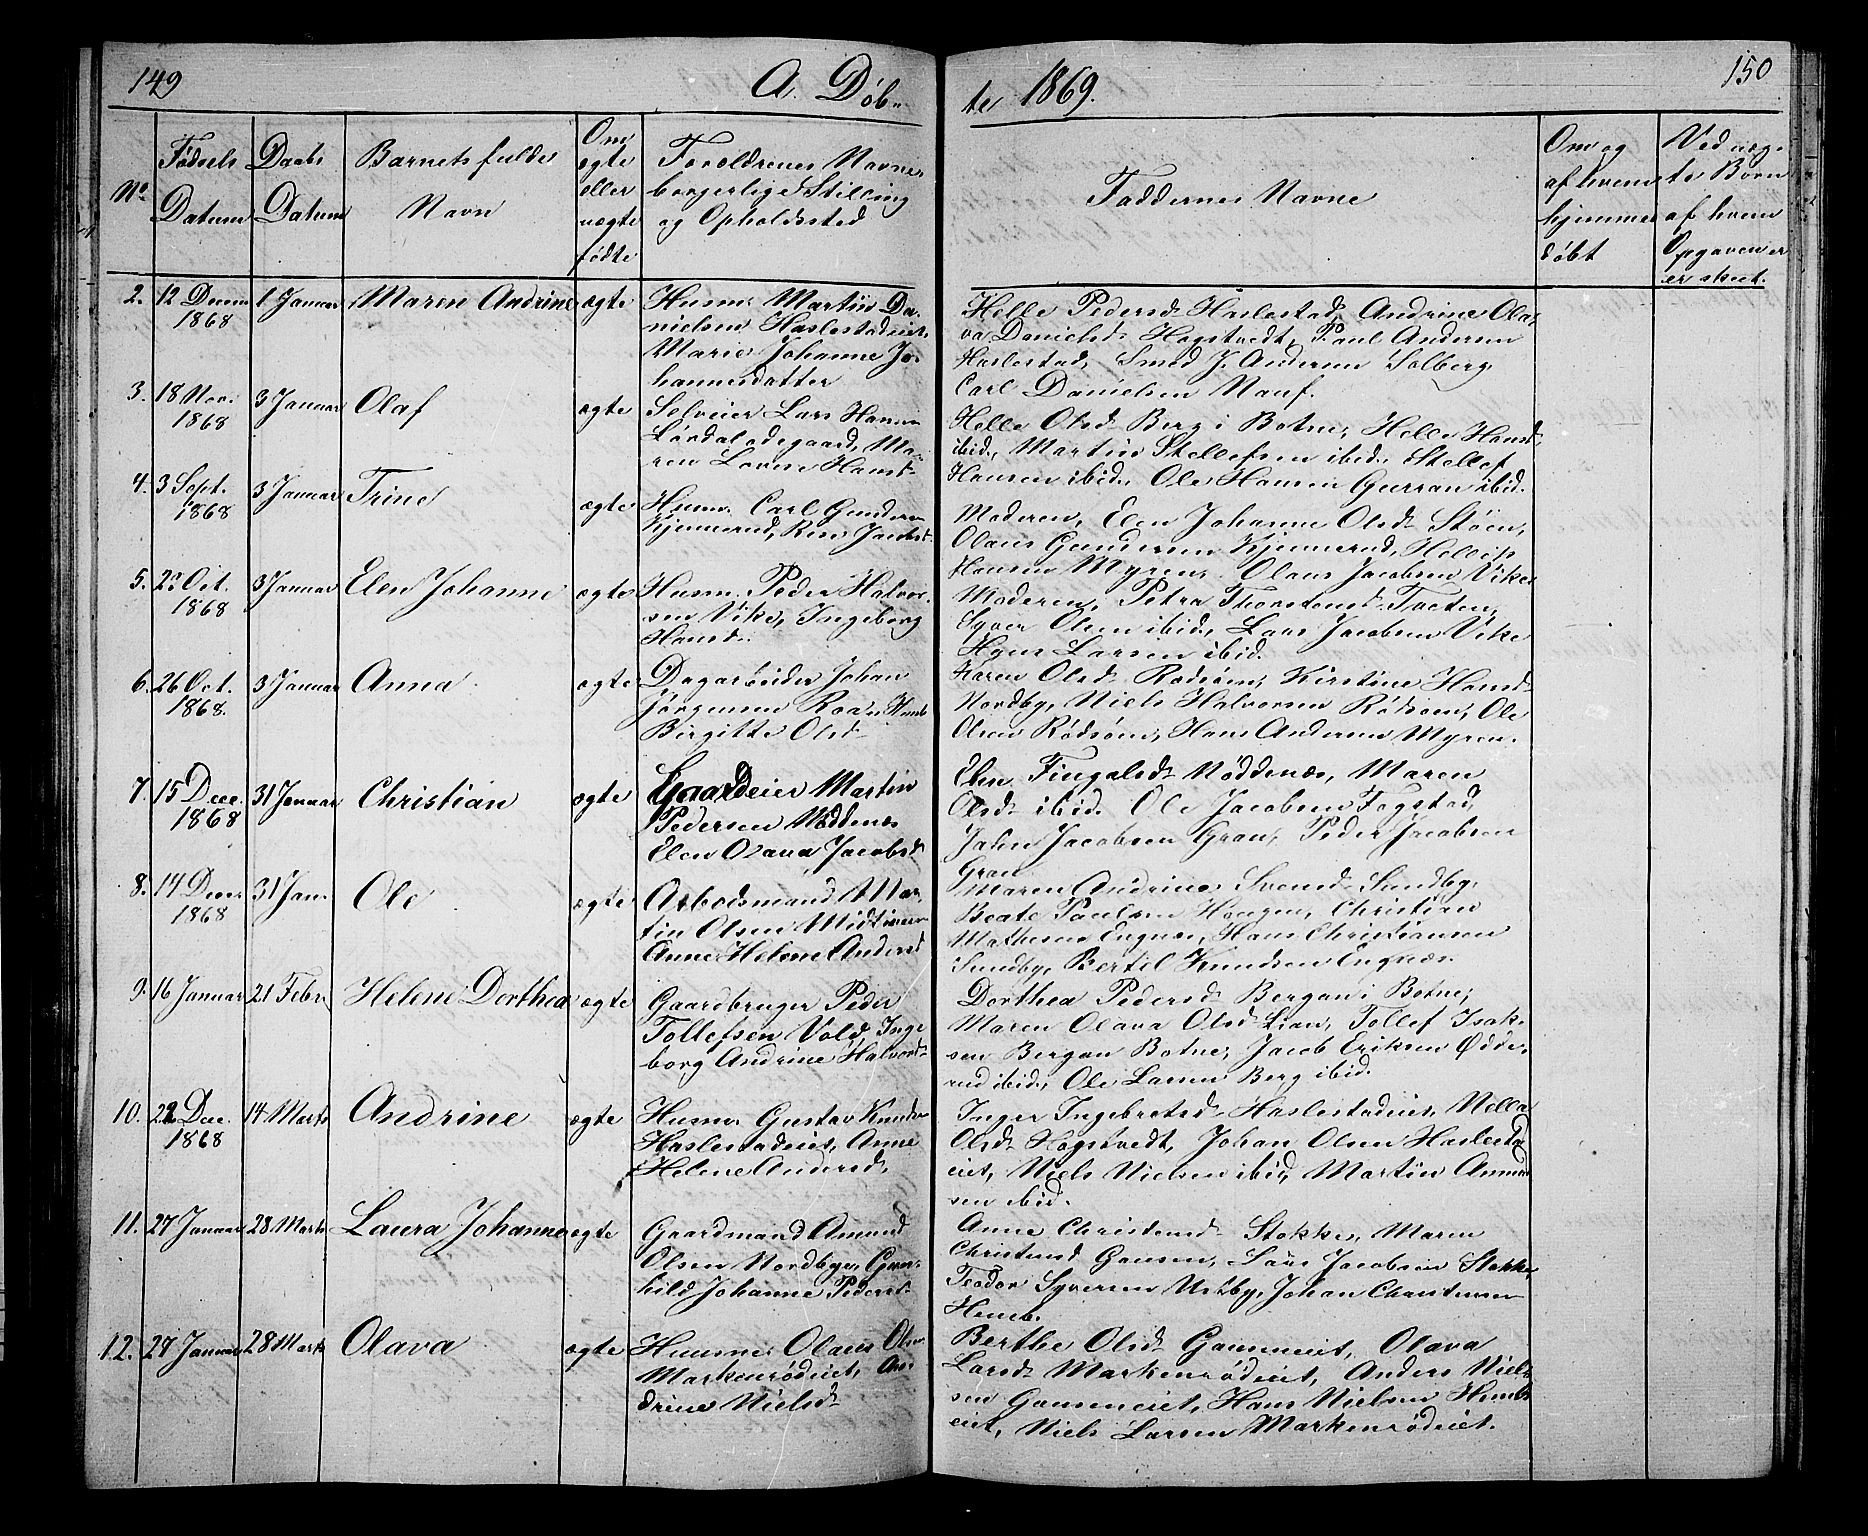 149
A. Døb-
te 1869.
150
No
Fødsels Datum
Daabs Datum
Barnets fulde Navn
Om ægte eller uægte fødte
Forældrenes Navne, borgerlige Stilling og Opholdssted
Faddernes Navne
Om og af hvem hjemmedøbt
Ved uægte Børn af hvem Opgaven er er skeet.
2. 12 Decem 1868
1 Januar
Maren Andrine
ægte
Husm. Martin Da-
nielsen Haslestadeiet,
Marie Johanne Jo-
hannesdatter
Helle Pedersd Haslestad, Andrine Ola-
va Danielsd Hogstvedt, Paul Andersen
Haslestad, Smed J. Andersen Solberg
Carl Danielsen Nauf.
3. 18 Nov. 1868
3 Januar
Olaf
ægte
Selveier Lars Hansen
Lørdalødegaard, Ma-
ren Lovise Hansd
Helle Olsd Berg i Botne, Helle Hansd
ibid., Martin Stellefsen ibid., Stellef
Hansen ibid., Ole Hansen Gurran ibid.
4. 3 Sept. 1868
3 Januar
Trine
ægte
Husm. Carl Gundersen
Kjennerud, Jacobsd
Moderen, Elen Johanne Olsd Støen,
Olaus Gundersen Kjennerud, Hellip
Hansen Myren, Olaus Jacobsen Vike
5. Oct. 1868
3 Januar
Elen Johanne
ægte
Husm. Peder Halvor-
sen Vike, Ingeborg
Hansd
Moderen, Petra Thorstensd Tveten,
Syver Olsen ibid, Lars Jacobsen Vike
Larsen ibid.
6. 26 Oct. 1868.
3 Januar
Anna
ægte
Dagarbeider Johan
Jørgensen
Birgitte Olsd
Karen Olsd Rødsøen, Kirstine Hansd
Nordby, Niels Halvorsen Rødsøen, Ole
Olsen Rødsøen, Hans Andersen Myren.
7. 15 Dec. 1868
31 Januar
Christian
ægte
Gaardeier Martin
Pedersen Nøddenæs
Elen Olava Jacobsd
Elen Fingalsd Nøddenæs, Maren
Olsd ibid. Ole Jacobsen Fogstad,
John Jacobsen Gran, Peder Jacobsen
Gran
8. 14 Decer 1868
31 Jan.
Ole
ægte
Arbedsmand Mar-
tin Olsen
Anne Helene Andersd
Maren Andrine Svensd Sundby,
Beate Paulsen Haugen, Christian
Mathesen Engnæs, Hans Christiansen
Sundby, Bertel Knudsen Engnæs.
9. 16 Januar
21 Febr
Helene Dorthea
ægte
Gaardbruger Peder
Tollefsen Vold, Inge
borg Andrine Halvorsd
Dorthea Pedersd Bergan i Botne,
Maren Olava Olsd Lian, Tollef Isak-
sen Bergan Botne, Jacob Eriksen Ødde-
rud ibid., Ole Larsen Berg ibid.
10. 22 Dec. 1868
14 Marts
Andrine
ægte
Husm. Gustav Knudsen
Haslestadeiet, Anne
Helene Andersd,
Inger Ingebretsd Haslestadeiet, Nella
Olsd Hogstvedt, Johan Olsen Haslestad
eiet, Niels Nielsen ibid, Martin Amund
sen ibid.
11. 27 Januar
28 Marts
Laura Johanne
ægte
Gaardmand Amund
Olsen Nordbye, Gun-
hild Johanne Pedersd
Anne Christensd Stokke, Maren
Christensd Gausen, Lars Jacobsen Stokke,
Teodor Syversen Johan Christensen
12. 27 Januar
28 Marts
Olava
ægte
Husmd Olaus Olsen
Markerødeiet, An-
drine Nielsd
Berthe Olsd Gauseneiet, Olava
Larsd Markenrødeiet, Anders Niel-
sen Gauseneiet, Hans Nielsen
eiet, Niels Larsen Markenrødeiet.